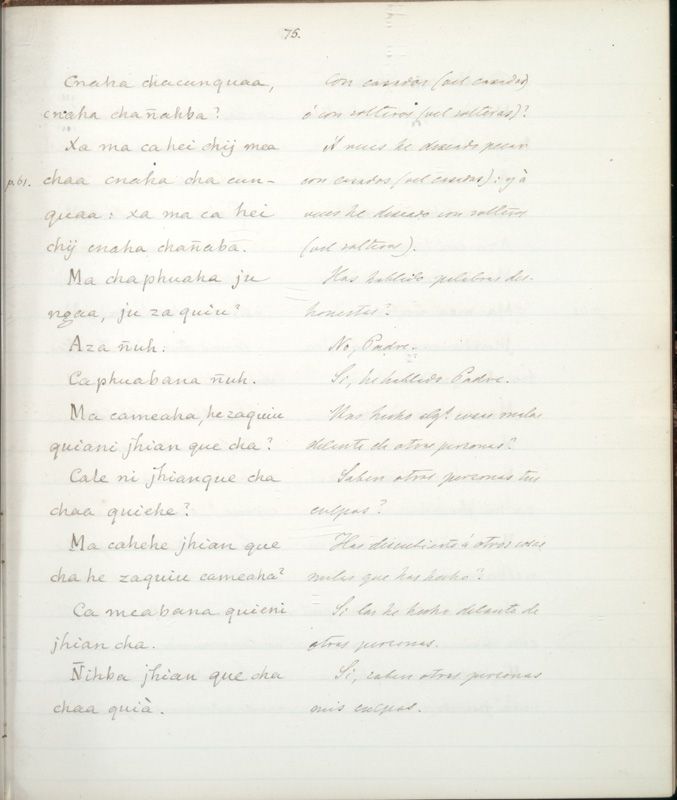 75.
Cnaha chacunquaa, con casados (vel casadas)
cnaha chañahba? ó con solteros (vel solteras)?
Xa ma ca hei chij mea A veces he deseado pecar
p. 61. chaa cnaha cha cun- con casados (vel casadas): y à
quaa: xa ma ca hei veces he deseado con solteros
chij cnaha chañaba. (vel solteras).
Ma chaphuaha ju Has hablado palabras des-
ngaa, ju zaquiu? honestas?
Aza ñuh. No, Padre.
Caphuabana ñuh. Si, he hablado Padre.
Ma cameaha, he zaquiu Has hecho algs. cosas malas
quiani jhian que cha? delante de otras personas?
Cale ni jhianque cha Saben otras personas tus
chaa quiehe? culpas?
Ma cahehe jhian que Has descubierto á otros cosas
cha he zaquiu cameaha? malas que has hecho?
Ca meabana quieni Si las he hecho delante de
jhian cha. otras personas.
Ñihba jhian que cha Si, saben otras personas
chaa quià. mis culpas.